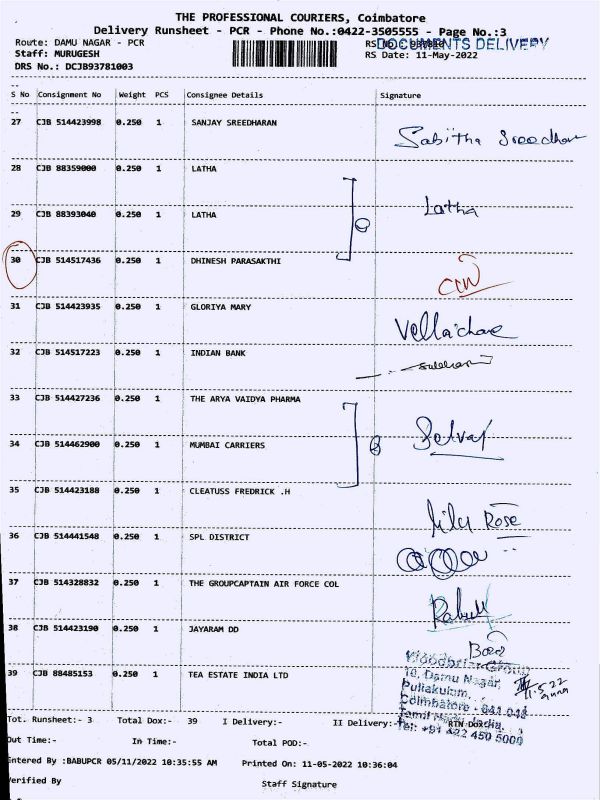 THE PROFESSIONAL COURIERS, Coimbatore
Delivery Runsheet - PCR - Phone No.:0422-3505555 - Page No.:3
Route: DAMU NAGAR - PCR RS No.: DOCUMENTS DELIVERY
Staff: MURUGESH RS Date: 11-May-2022
DRS No.: DCJB93781003
S No Consignment No Weight PCS Consignee Details Signature
27 CJB 514423998 0.250 1 SANJAY SREEDHARAN
Sabitha Sreedhar
28 CJB 88359000 0.250 1 LATHA
29 CJB 88393040 0.250 1 LATHA
Latha
30 CJB 514517436 0.250 1 DHINESH PARASAKTHI
31 CJB 514423935 0.250 1 GLORIYA MARY
32 CJB 514517223 0.250 1 INDIAN BANK
33 CJB 514427236 0.250 1 THE ARYA VAIDYA PHARMA
34 CJB 514462900 0.250 1 MUMBAI CARRIERS
35 CJB 514423188 0.250 1 CLEATUSS FREDRICK .H
Rose
36 CJB 514441548 0.250 1 SPL DISTRICT
37 CJB 514328832 0.250 1 THE GROUPCAPTAIN AIR FORCE COL
38 CJB 514423190 0.250 1 JAYARAM DD
39 CJB 88485153 0.250 1 TEA ESTATE INDIA LTD
Woodbriar Group
Damu Nagar,
Puliakulam,
Coimbatore - 641 045
Tamil Nadu, India.
Tel: +91 422 450 5000
11.5.22
Tot. Runsheet:- 3 Total Dox:- 39 I Delivery:- II Delivery:- RTN DOX:-
Out Time:- In Time:- Total POD:-
Entered By :BABUPCR 05/11/2022 10:35:55 AM Printed On: 11-05-2022 10:36:04
Verified By Staff Signature